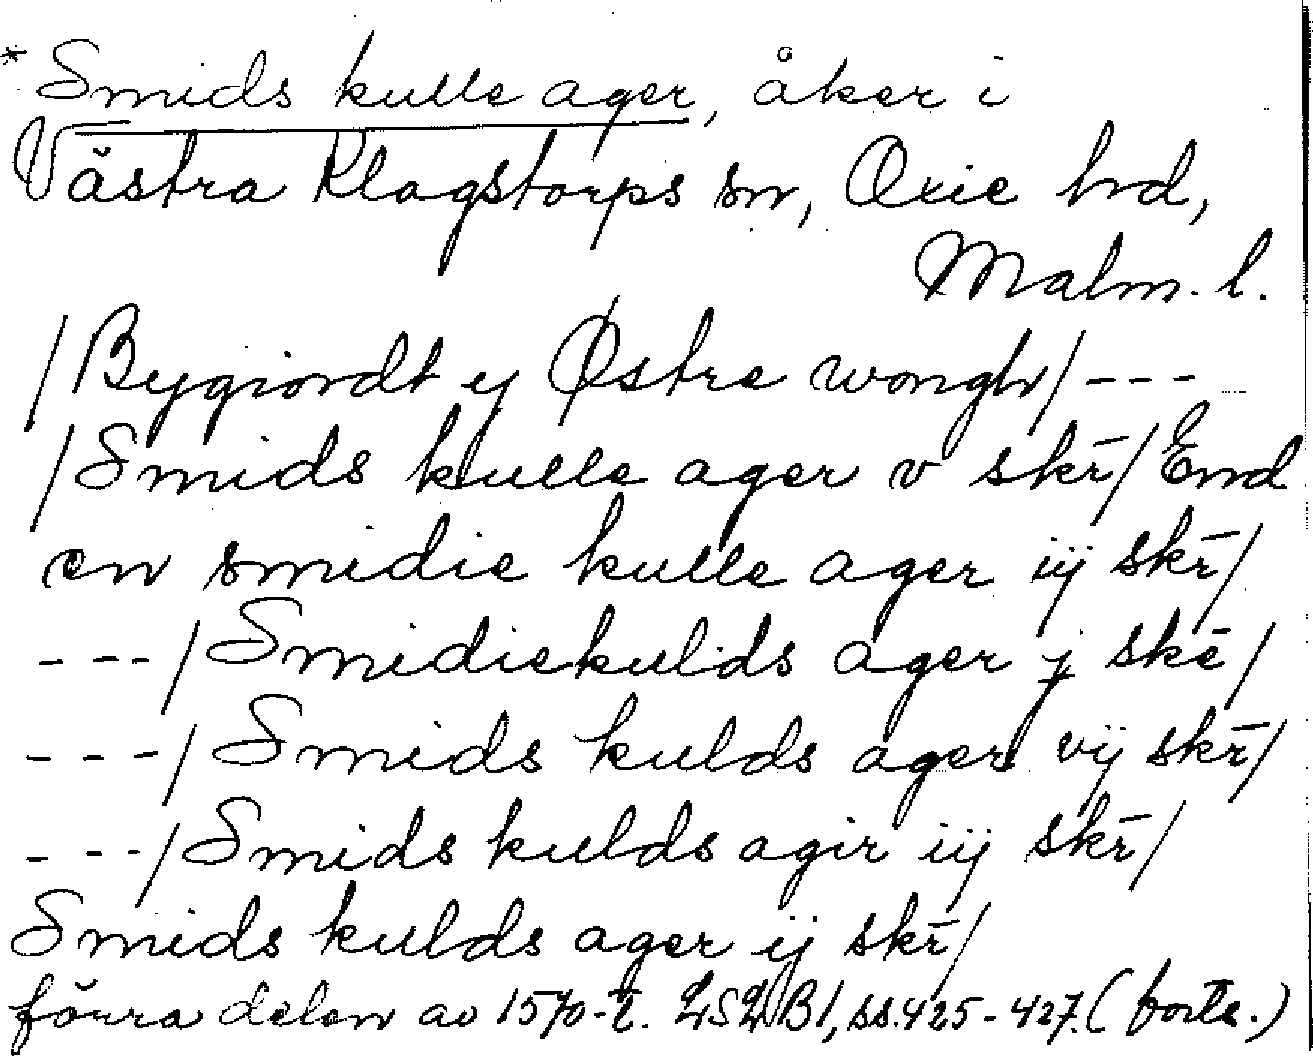 *Smids kulle ager, åker i
Västra Klagstorps sn, Oxie hd,
Malm. l.
/Bygiordt y Østre wongh/ ---
/Smids kulle ager v skr̄/ End
en smidie kulle ager iij skr̄/
---/Smidiekulds ager j skē/
---/Smids kulds ager vij skr̄/
---/Smids kulds agir iij skr̄/
Smids kulds ager ij skr̄/
förra delen av 1570-t. LSLB1, ss. 425-427. (forts.)